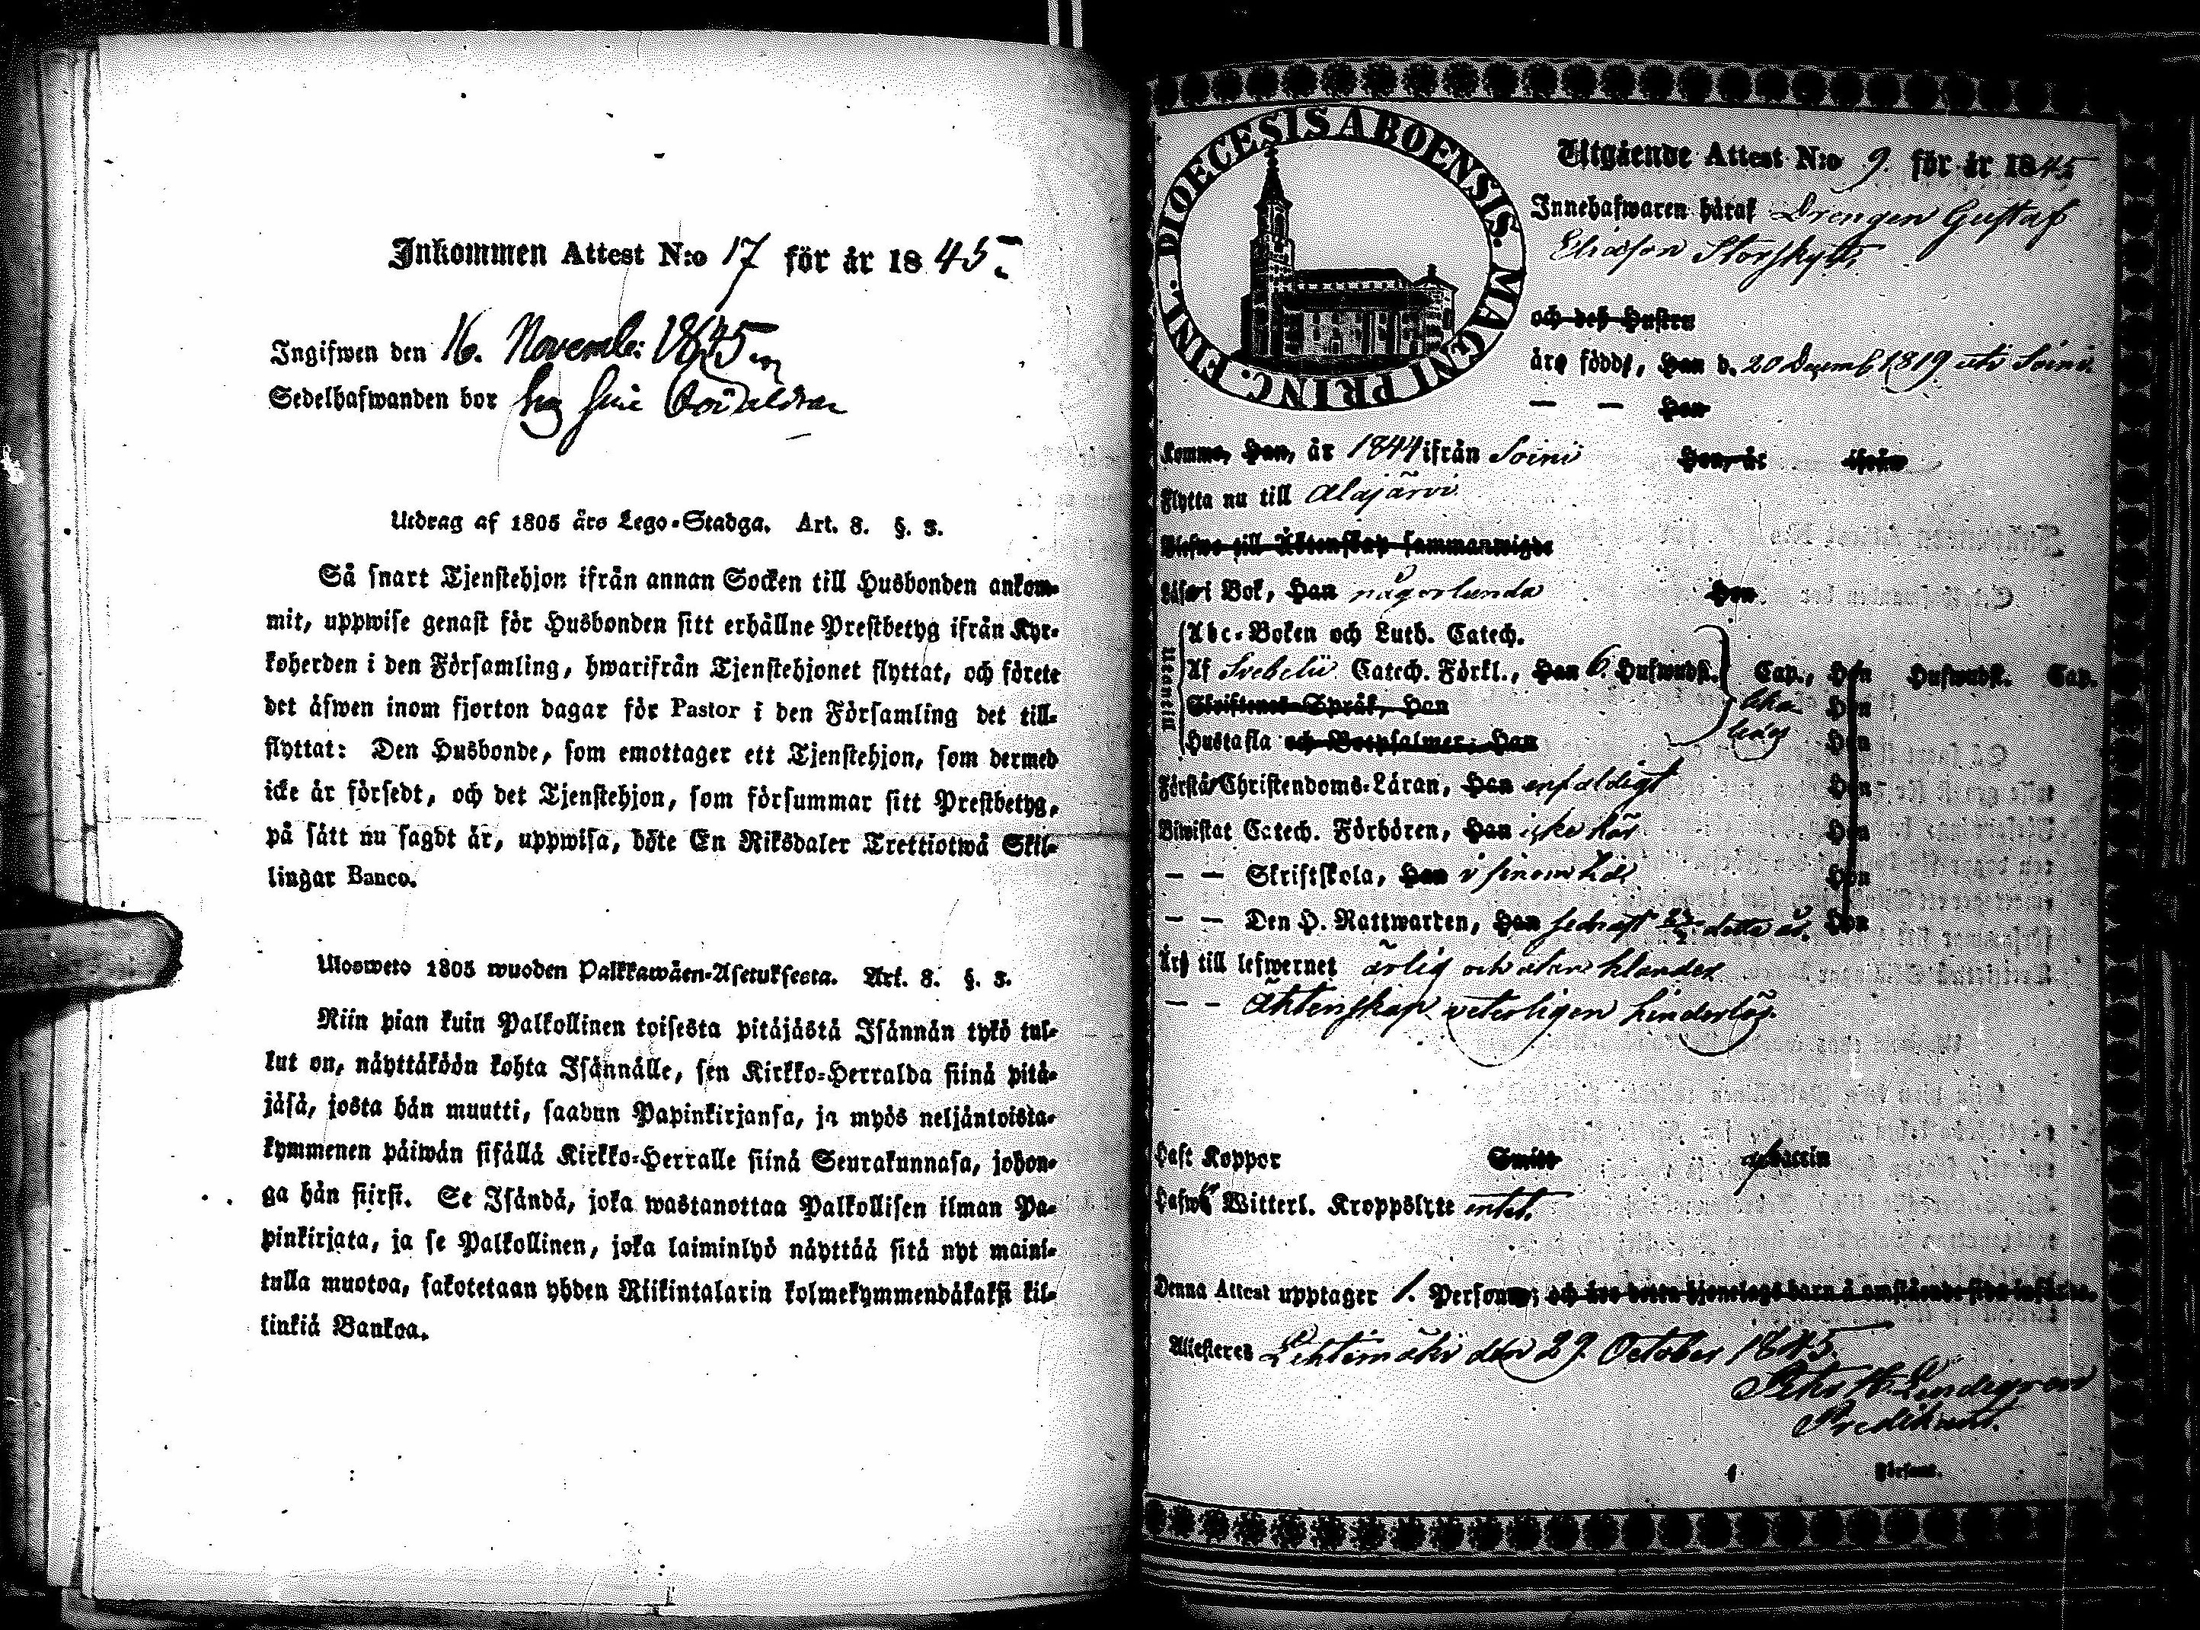 Inkommen Attest N:o 17 för år 1845.
Ingifwen den 16. November 1845
Sedelhafwanden bor hos
Utdrag af 1805 års Lego-Stadga. Art. 8. §. 3.
Så snart Tjenstehjon ifrån annan Socken till Husbonden ankom-
mit, uppwise genast för Husbonden sitt erhållne Prestbetyg ifrån Kyr-
koherden i den Församling, hwarifrån Tjenstehjonet flyttat, och förete
det äfwen inom fjorton dagar för Pastor i den Församling det till-
flyttat: Den Husbonde, som emottager ett Tjenstehjon, som dermed
icke är försedt, och det Tjenstehjon, som försummar sitt Prestbetyg,
på sätt nu sagdt är, uppwisa, böte En Riksdaler Trettiotwå Skil-
lingar Banco.
Ulosweto 1805 wuoden Palkkawäen-Asetuksesta. Art. 8. §. 3.
Niin pian kuin Palkollinen toisesta pitäjästä Isännän tykö tul-
lut on, näyttäköön kohta Isännälle, sen Kirkko-Herralda siinä pitä-
jäsä, josta hän muutti, saadun Papinkirjansa, ja myös neljäntoista-
kymmenen päiwän sisällä Kirkko-Herralle siinä Seurakunnasa, johon-
ga hän siirsi. Se Isändä, joka wastanottaa Palkollisen ilman Pa-
pinkirjata, ja se Palkollinen, joka laiminlyö näyttää sitä nyt maini-
tulla muotoa, sakotetaan yhden Riikintalarin kolmekymmendäkaksi kil-
linkiä Bankoa.
DIOECESIS ABOENSIS. MAGNI PRINC. FINL.
Utgående Attest N:o 9. för år 1845
Innehafwaren häraf Drengen Gustaf
Eliasson Storskytt,
och dess Hustru
äro född, han d. 20 Decemb 1819 uti Soini.
— — Hon
komme, Han, år 1844 ifrån Soini Hon, år ifrån
Flytta nu till Alajärvi.
Blefwo till Äktenskap sammanwigde
Läser i Bok, Han någorlunda Hon
Utanlexa
Abc-Boken och Luth. Catech.
Af Svebelii Catech. Förkl., Han 6. Hufwudst. Cap., Hon Hufwudst. Cap.
Skriftenes Språk, Han Hon
Hustafla och Botpsalmer, Han Hon
Förstår Christendoms-Läran, Han enfaldigt Hon
Biwistat Catech. Förhören, Han icke här Hon
— — Skriftskola, Han i sinom tid Hon
— — Den H. Nattwarden, Han sednast detta år. Hon
Är till lefwernet ärlig och utan klander
— — Äktenskap veterligen hinderlös.
Haft Koppor Smitt Vaccin
Hafwer Witterl. Kroppslyte intet.
Denna Attest upptager 1. Person; och äro deras hjonelags barn å omstående sida införde.
Attesteres Lehtimäki den 29 October 1845.
Lindegren
Predikant.
Församl.